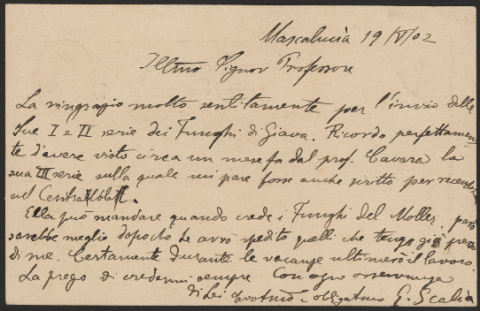 Mascalucia 19/VI/02
Illmo Signor Professore
La ringrazio molto sentitamente per l'invio delle
Sue I e II serie dei Funghi di Giava. Ricordo perfettamen-
te d'avere visto circa un mese fa dal prof. Cavara la
sua III serie sulla quale mi pare fosse anche scritto per
nel Centralblatt.
Ella può mandare quando crede i Funghi del Moller, però
sarebbe meglio dopochè Le avrò spedito quelli che tengo già presso
di me. Certamente durante le vacanze ultimerò il lavoro.
La prego di credermi sempre Con ogni osservanza
di Lei devotmo e obbligatmo G. Scalia